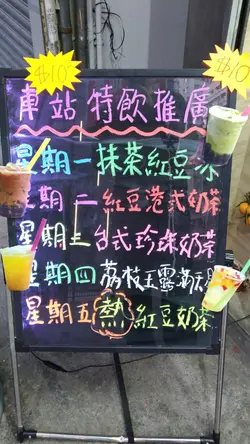 $10 $10
車站特飲推廣
星期一抹茶紅豆冰
星期二紅豆港式奶茶
星期三台式珍珠奶茶
星期四荔枝玉露
星期五熱紅豆奶茶